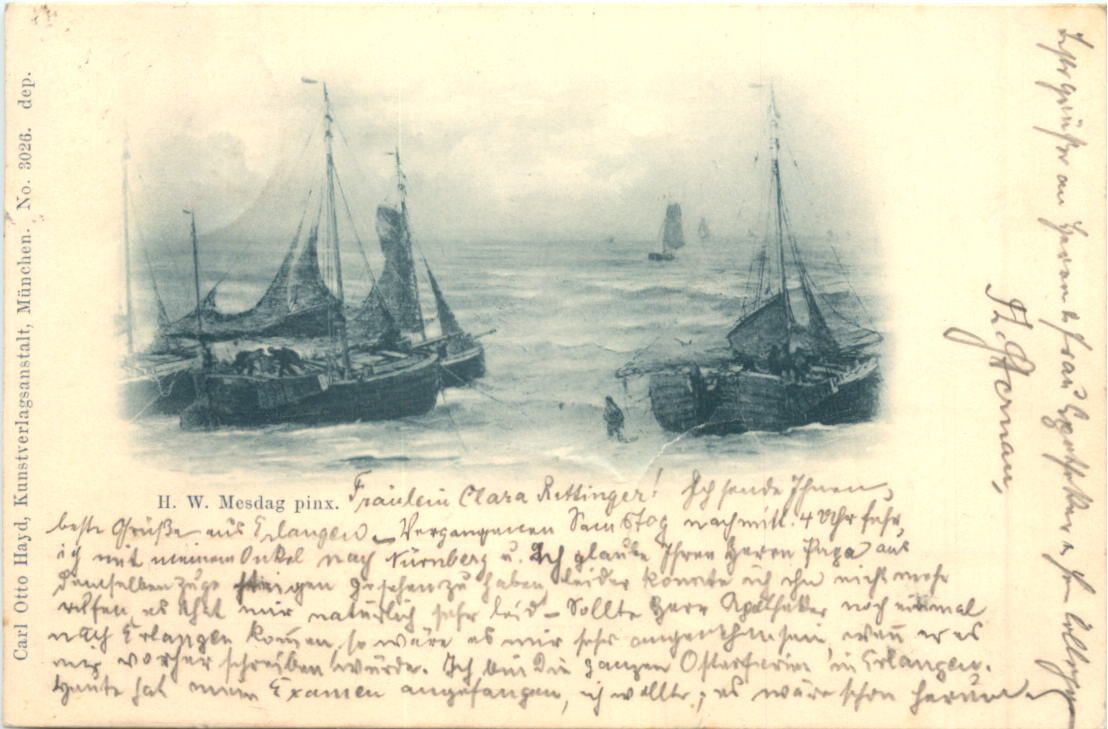 Carl Otto Hayd, Kunstverlagsanstalt, München. No. 3026. dep.
H. W. Mesdag pinx.
Fräulein Clara Rettinger! Ich sende Ihnen
beste Grüße aus Erlangen. Vergangenen Samstag nachmitt. 4 Uhr fuhr
ich mit meinem Onkel nach Nürnberg u. Ich glaube Ihren Herrn Papa aus
demselben Zuge steigen gesehen zu haben, leider konnte ich ihn nicht mehr
rufen, es that mir natürlich sehr leid – Sollte Herr Apotheker noch einmal
nach Erlangen kommen, so wäre es mir sehr angenehm, wenn er es
mir vorher schreiben würde. Ich bin die ganzen Osterferien in Erlangen.
Heute hat mein Examen angefangen, ich wollte, es wäre schon herum
Grüße an Herrn & Frau Apotheker